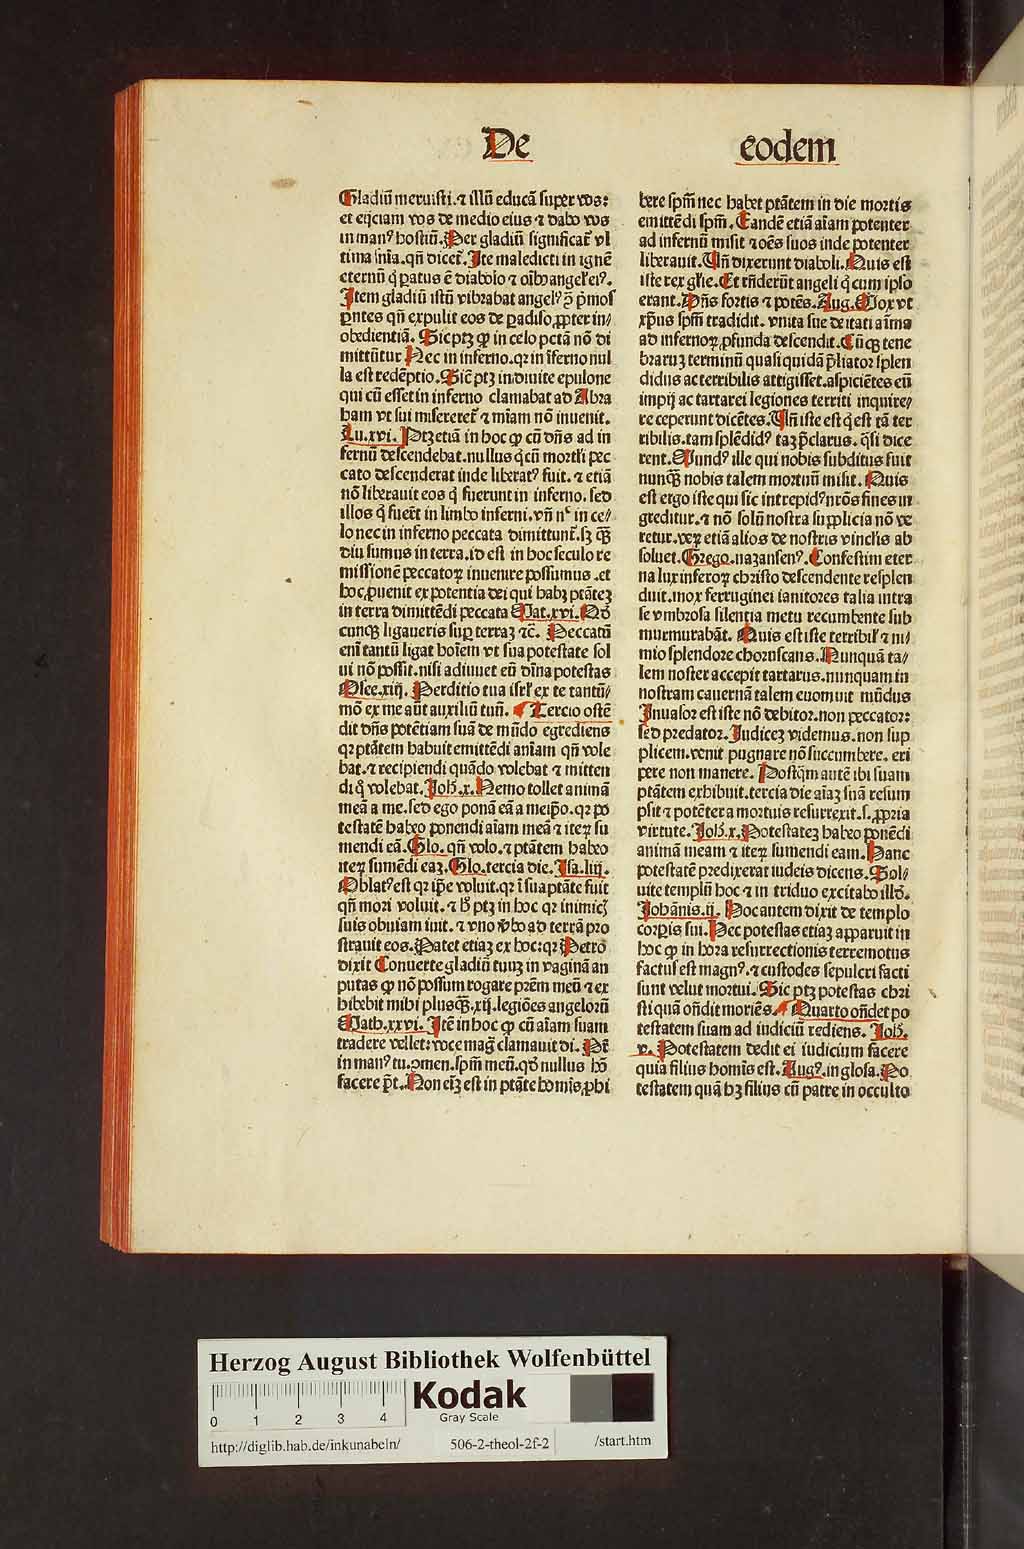 De eodem
Gladiū meruisti.⁊ illū educā super vos:
et eijciam vos de medio eius ⁊ dabo vos
in manꝰ hostiū. Per gladiū significat᷒ vl
tima snīa. qn̄ dicet᷒. Ite maledicti in ignē
eternū q̇ ꝑatus ē diabolo ⁊ oīb᷒ angel᷒ eiꝰ.
Item gladiū istū vibrabat angelꝰ ꝯ̄ pͥmos
ꝑntes qn̄ expulit eos de ꝑadiso ꝓpter in⸗
obedientiā. Sic ptꝫ ꝙ in celo pctā nō di
mittūtur Nec in inferno. qꝛ in īferno nul
la est redēptio. Sic̄ ptꝫ in diuite epulone
qui cū esset in inferno clamabat ad Abra
ham vt sui misereret᷒ ⁊ mīam nō inuenit.
Lu.xvi. Ptꝫ etiā in hoc ꝙ cū dn̄s ad in
fernū descendebat. nullus q̇ cū mortli pec
cato descenderat inde liberatꝰ fuit. ⁊ etiā
nō liberauit eos q̇ fuerunt in inferno. sed
illos q̇ fuer̄t in limbo inferni. vn̄ nᶜ in ce⸗
lo nec in inferno peccata dimittunt᷒. sꝫ qͣꝫ
diu sumus in terra. id est in hoc seculo re
missionē peccatoꝝ inuenire possumus. et
hoc ꝓuenit ex potentia dei qui habꝫ ptātēꝫ
in terra dimittēdi peccata Mat.xvi. Qͦd
cunqꝫ ligaueris suꝑ terraꝫ ⁊c̄. Peccatū
eni tantū ligat hoīem vt sua potestate sol
ui nō possit. nisi adiuuet eū dīna potestas
Osee.xiij. Perditio tua isrl᷒ ex te tantū⸗
mō ex me aūt auxiliū tuū. Tercio ostē
dit dn̄s potētiam suā de mūdo egrediens
qꝛ ptātem habuit emittēdi anīam qn̄ vole
bat. ⁊ recipiendi quādo volebat ⁊ mitten
di q̊ volebat. Joh̄.x. Nemo tollet animā
meā a me. sed ego ponā eā a meip̄o. qꝛ po
testatē habeo ponendi aīam meā ⁊ iteꝝ su
mendi eā. Glo. qn̄ volo. ⁊ ptātem habeo
iteꝝ sumēdi eaꝫ. Glo. tercia die. Isa.liij.
Oblatꝰ est qꝛ ip̄e voluit. qꝛ ī sua ptāte fuit
qn̄ mori voluit. ⁊ h̄ ptꝫ in hoc qꝛ inimicꝭ
suis obuiam iuit. ⁊ vno v̄bo ad terrā pro
strauit eos. Patet etiaꝫ ex hoc: qꝛ Petro
dixit Conuerte gladiū tuuꝫ in vaginā an
putas ꝙ nō possum rogare prēm meū ⁊ ex
hibebit mihi plusqͣꝫ.xij. legiōes angeloꝝ
Math.xxvi. Itē in hoc ꝙ cū aīam suam
tradere vellet: voce mag᷒ clamauit di. Pr̄
in manꝰ tu. ꝯmen. spm̄ meū. qd̄ nullus hō
facere p̄t. Non eīꝫ est in ptāte homīs ꝓhi
bere spm̄ nec habet ptātem in die mortis
emittēdi spm̄. Eandē etiā aīam potenter
ad infernū misit ⁊ oēs suos inde potenter
liberauit. Vn̄ dixerunt diaboli. Quis est
iste rex gl᷒ie. Et rn̄derūt angeli q̇ cum ipso
erant. Dn̄s fortis ⁊ potēs. Aug. Mox vt
xp̄us spm̄ tradidit. vnita sue deitati aīma
ad infernoꝝ ꝓfunda descendit. Cūqꝫ tene
braruꝫ terminū quasi quidā p̄liator splen
didus ac terribilis attigisset. aspiciētes eū
impij ac tartarei legiones territi inquire⸗
re ceperunt dicētes. Vn̄ iste est q̇ est tā ter
ribilis. tam splēdidꝰ taꝫ p̄clarus. qͣsi dice
rent. Mundꝰ ille qui nobis subditus fuit
nunqͣꝫ nobis talem mortuū misit. Quis
est ergo iste qui sic intrepidꝰ nrōs fines in
greditur. ⁊ nō solū nostra supplicia nō ve
retur. veꝝ etiā alios de nostris vinclis ab
soluet. Grego. nazansenꝰ. Confestim eter
na lux inferoꝝ christo descendente resplen
duit. mox ferruginei ianitores talia intra
se vmbrosa silentia metu recumbente sub
murmurabāt. Quis est iste terribil᷒ ⁊ ni
mio splendore choruscans. Nunquā ta⸗
lem noster accepit tartarus. nunquam in
nostram cauernā talem euomuit mūdus
Inuasor est iste nō debitor. non peccator:
sed predator. Judiceꝫ videmus. non sup
plicem. venit pugnare nō succumbere. eri
pere non manere. Postqͣm autē ibi suam
ptātem exhibuit. tercia die aīaꝫ suā resum
psit ⁊ potēter a mortuis resurrexit. s. ꝓpria
virtute. Joh̄.x. Potestateꝫ habeo ponēdi
animā meam ⁊ iteꝝ sumendi eam. Hanc
potestatē predixerat iudeis dicens. Sol⸗
uite templū hoc ⁊ in triduo excitabo illd̄.
Johānis.ij. Hoc autem dixit de templo
corꝑis sui. Hec potestas etiaꝫ apparuit in
hoc ꝙ in hora resurrectionis terremotus
factus est magnꝰ. ⁊ custodes sepulcri facti
sunt velut mortui. Sic ptꝫ potestas chri
sti quā on̄dit moriēs. Quarto on̄det po
testatem suam ad iudiciū rediens. Joh̄.
v. Potestatem dedit ei iudicium facere
quia filius homīs est. Augꝰ. in glosa. Po
testatem quā hꝫ filius cū patre in occulto
Herzog August Bibliothek Wolfenbüttel
0 1 2 3 4
Kodak
Gray Scale
http://diglib.hab.de/inkunabeln/ 506-2-theol-2f-2 /start.htm